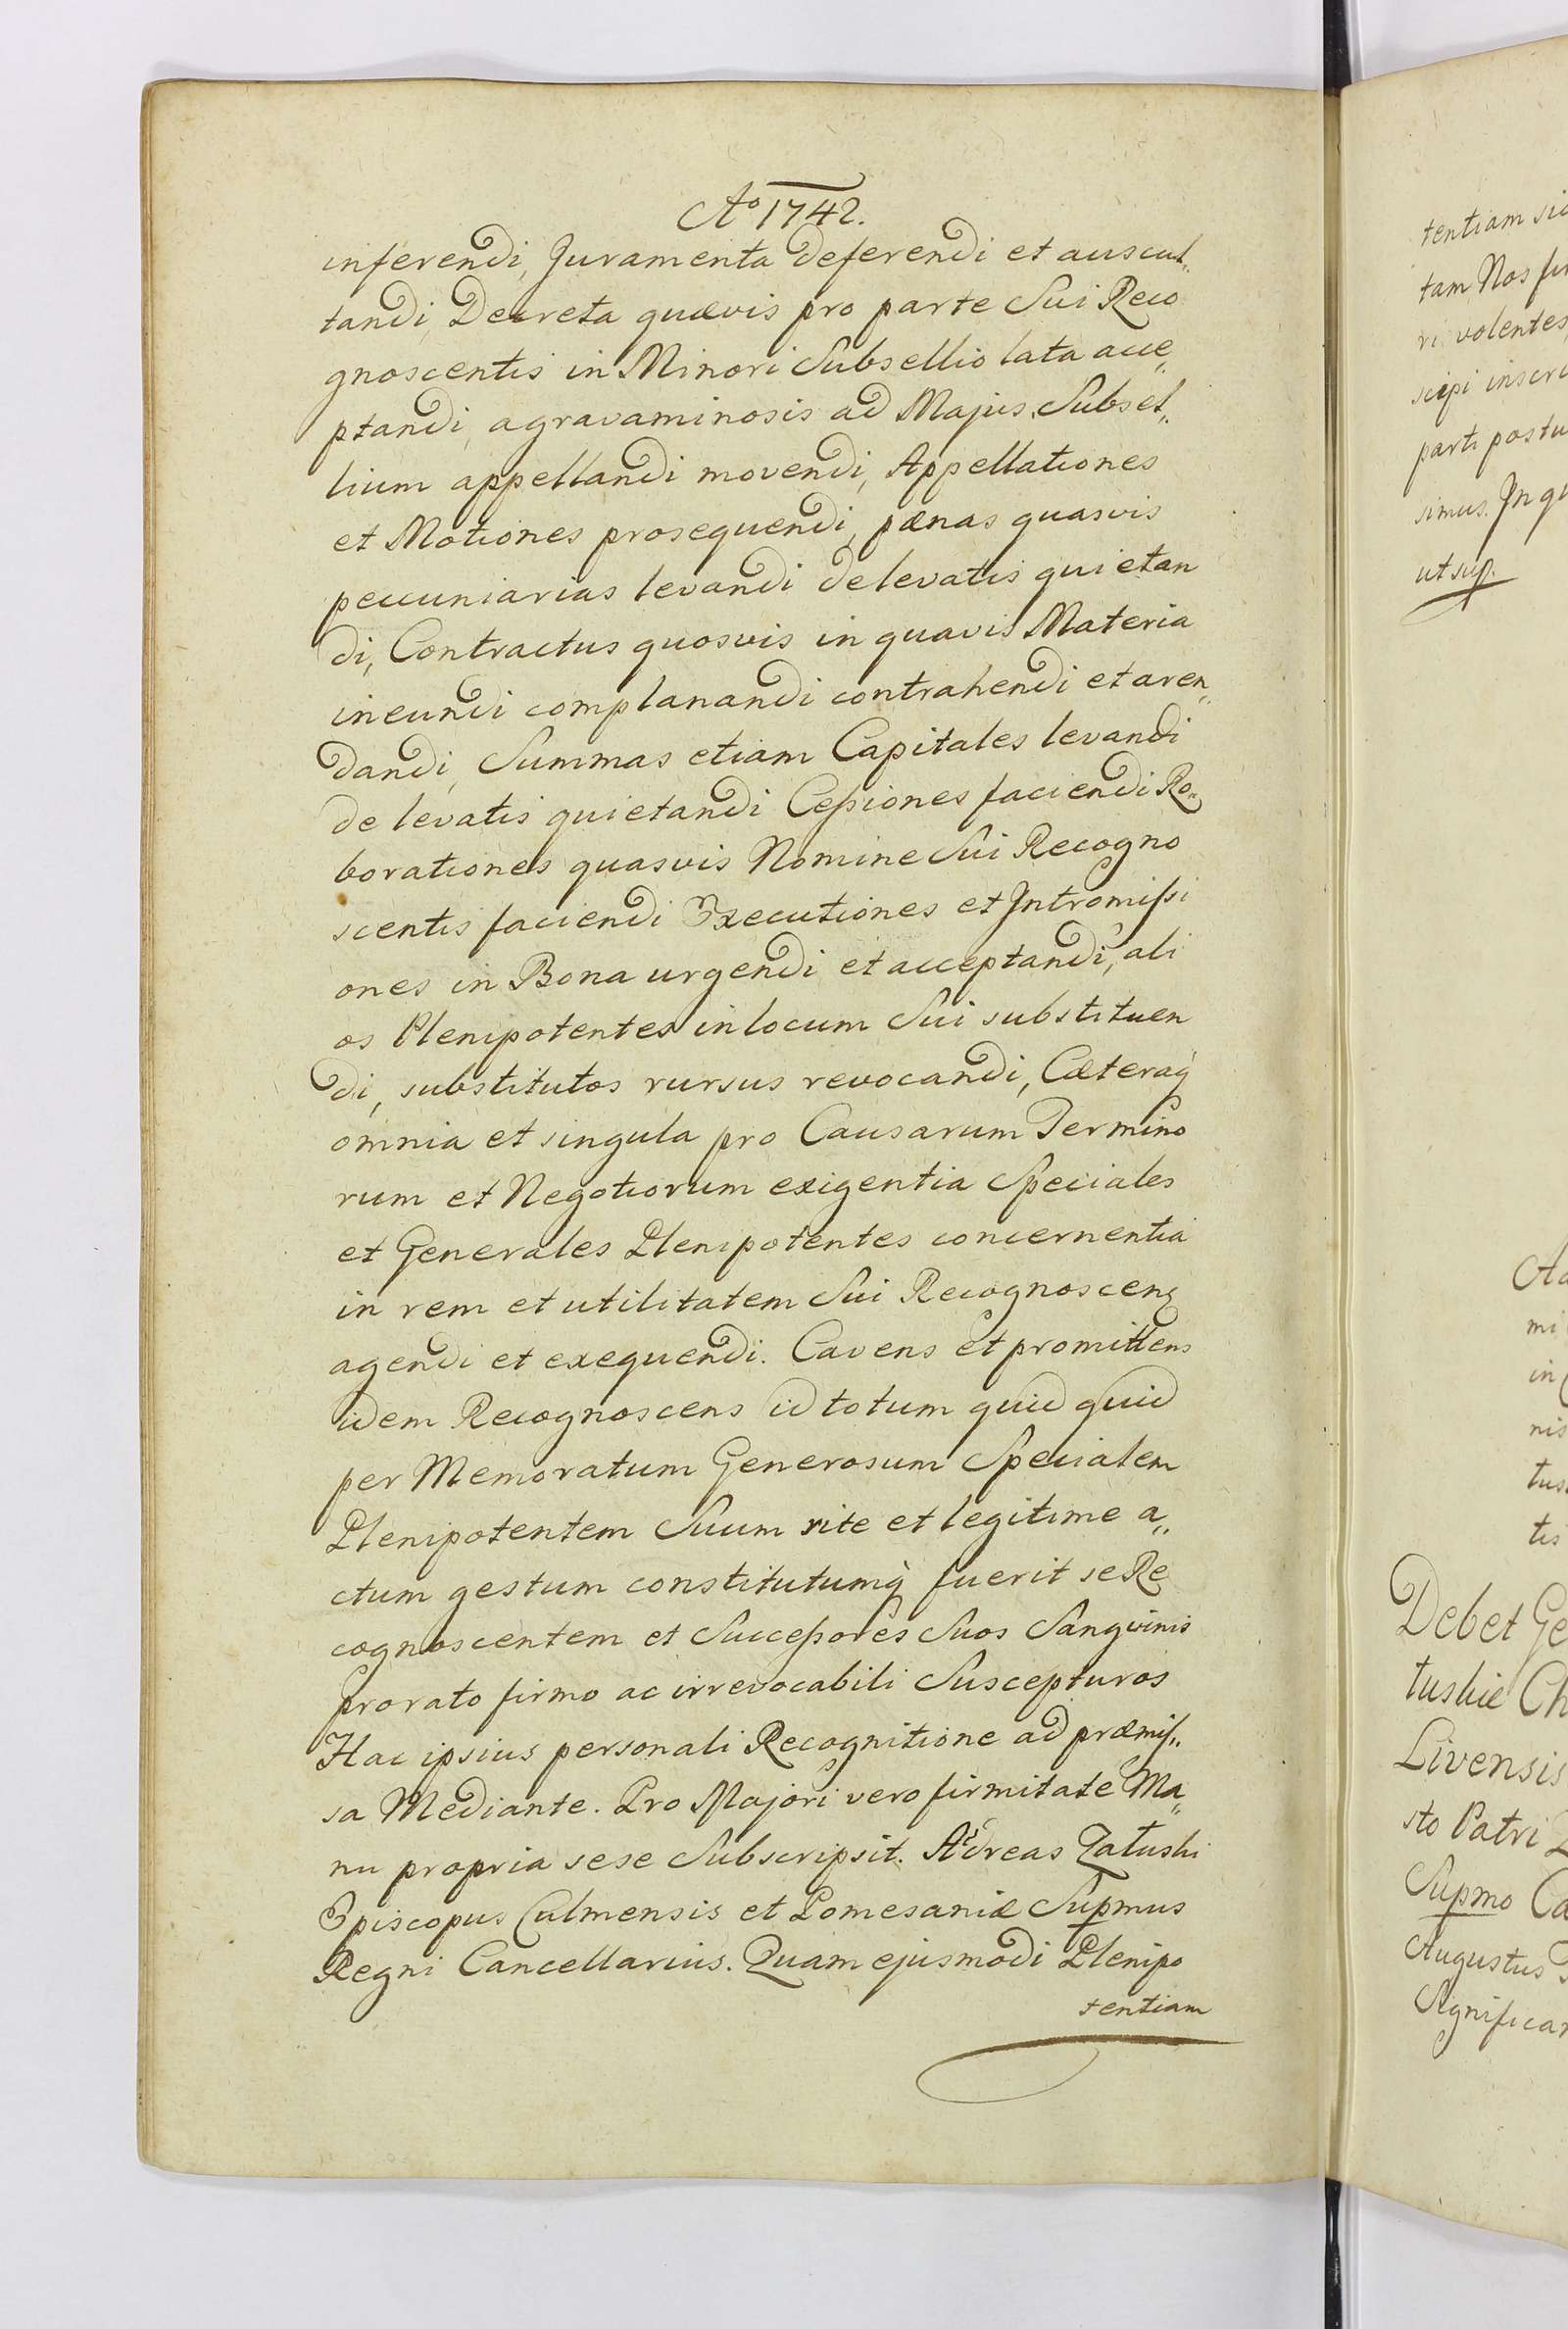 Aº 1742.
inferendi, Juramenta deferendi et auscul„
tandi, Decreta quævis pro parte Sui Reco
gnoscentis in Minori Subsellio lata acce„
ptandi, agravaminosis ad Majus Subsel„
lium appellandi movendi, Appellationes
et Motiones prosequendi, pænas quasvis
peccuniarias levandi de levatis quietan
di, Contractus quosvis in quavis Materia
ineundi complanandi contrahendi et aren„
dandi, Summas etiam Capitales levandi
de levatis quietandi Cessiones faciendi Ro„
borationes quasvis Nomine Sui Recogno
scentis faciendi Executiones et Intromissi
ones in Bona urgendi et acceptandi, ali
os Plenipotentes in locum Sui substituen
di, substitutos rursus revocandi, Cæteraq
omnia et singula pro Causarum Termino
rum et Negotiorum exigentia Speciales
et Generales Plenipotentes concernentia
in rem et utilitatem Sui Recognoscen
agendi et exequendi. Cavens et promittens
idem Recognoscens id totum quid quid
per Memoratum Generosum Specialem
Plenipotentem Suum rite et legitime a„
ctum gestum constitutumq fuerit se Re
cognoscentem et Successores Suos Sangvinis
pro rato firmo ac irrevocabili Suscepturos
Hac ipsius personali Recognitione ad præmis„
sa Mediante. Pro Majori vero firmitate Ma„
nu propria sese Subscripsit. Adreas Zatuski
Episcopus Culmensis et Pomesaniæ Supmus
Regni Cancellarius. Quam ejusmodi Plenipo
tentiam
tentiam
tam Nos
ri volentes
scipi
parti
simus. In
ut sup.
mi
in
nis
tus
tis
Debet
tuskie
Livensis
sto Patri
Supmo
Augustus